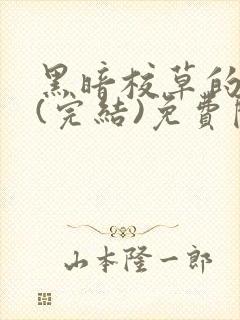 黑暗校草的
(完結)免費
山本隆一郎